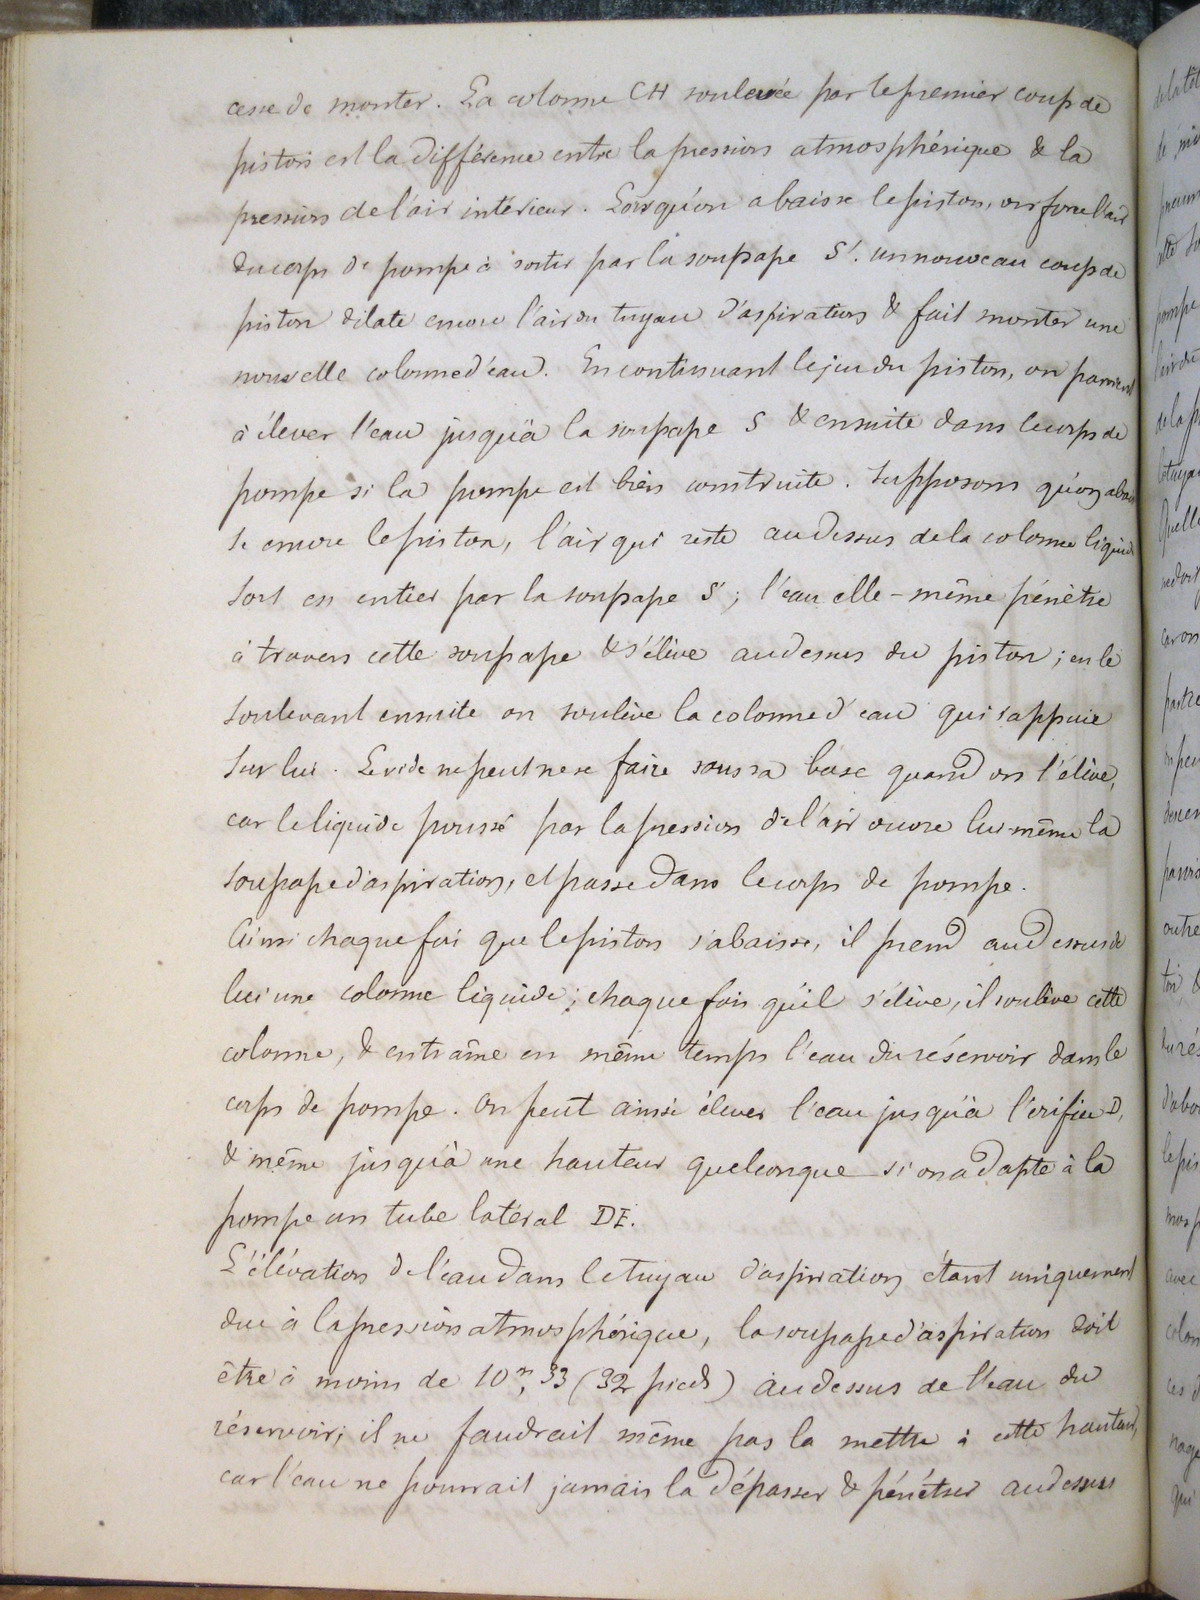 cesse de monter. La colonne CH soulevée par le premier coup de
piston est la différence entre la pression atmosphérique & la
pression de l'air intérieur. Lorsqu'on abaisse le piston, on force l'air
du corps de pompe à sortir par la soupape S'. un nouveau coup de
piston dilate encore l'air du tuyau d'aspiration & fait monter une
nouvelle colonne d'eau. En continuant le jeu du piston, on parvient
à élever l'eau jusqu'à la soupape S & ensuite dans le corps de
pompe si la pompe est bien construite. Supposons qu'on abais
se encore le piston, l'air qui reste au dessus de la colonne liquide
sort en entier par la soupape S'; l'eau elle-même pénètre
à travers cette soupape & s'élève au dessus du piston; en le
soulevant ensuite on soulève la colonne d'eau qui s'appuie
sur lui. Le vide ne peut ne se faire sous sa base quand on l'élève,
car le liquide poussé par la pression de l'air ouvre lui-même la
soupape d'aspiration, et passe dans le corps de pompe.
Ainsi chaque fois que le piston s'abaisse, il prend au dessus de
lui une colonne liquide; chaque fois qu'il s'élève, il soulève cette
colonne, & entraîne en même temps l'eau du réservoir dans le
corps de pompe. On peut ainsi élever l'eau jusqu'à l'orifice D,
& même jusqu'à une hauteur quelconque si on adapte à la
pompe un tube latéral DE.
L'élévation de l'eau dans le tuyau d'aspiration étant uniquement
due à la pression atmosphérique, la soupape d'aspiration doit
être à moins de 10m,33 (32 pieds) au dessus de l'eau du
réservoir; il ne faudrait même pas la mettre à cette hauteur,
car l'eau ne pourrait jamais la dépasser & pénétrer au dessus